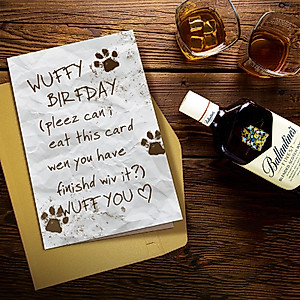 WUFFY
BIRFDAY
(pleez can i
eat this card
wen you have
finishd wiv it?)
WUFF YOU ♡
Ballantine's